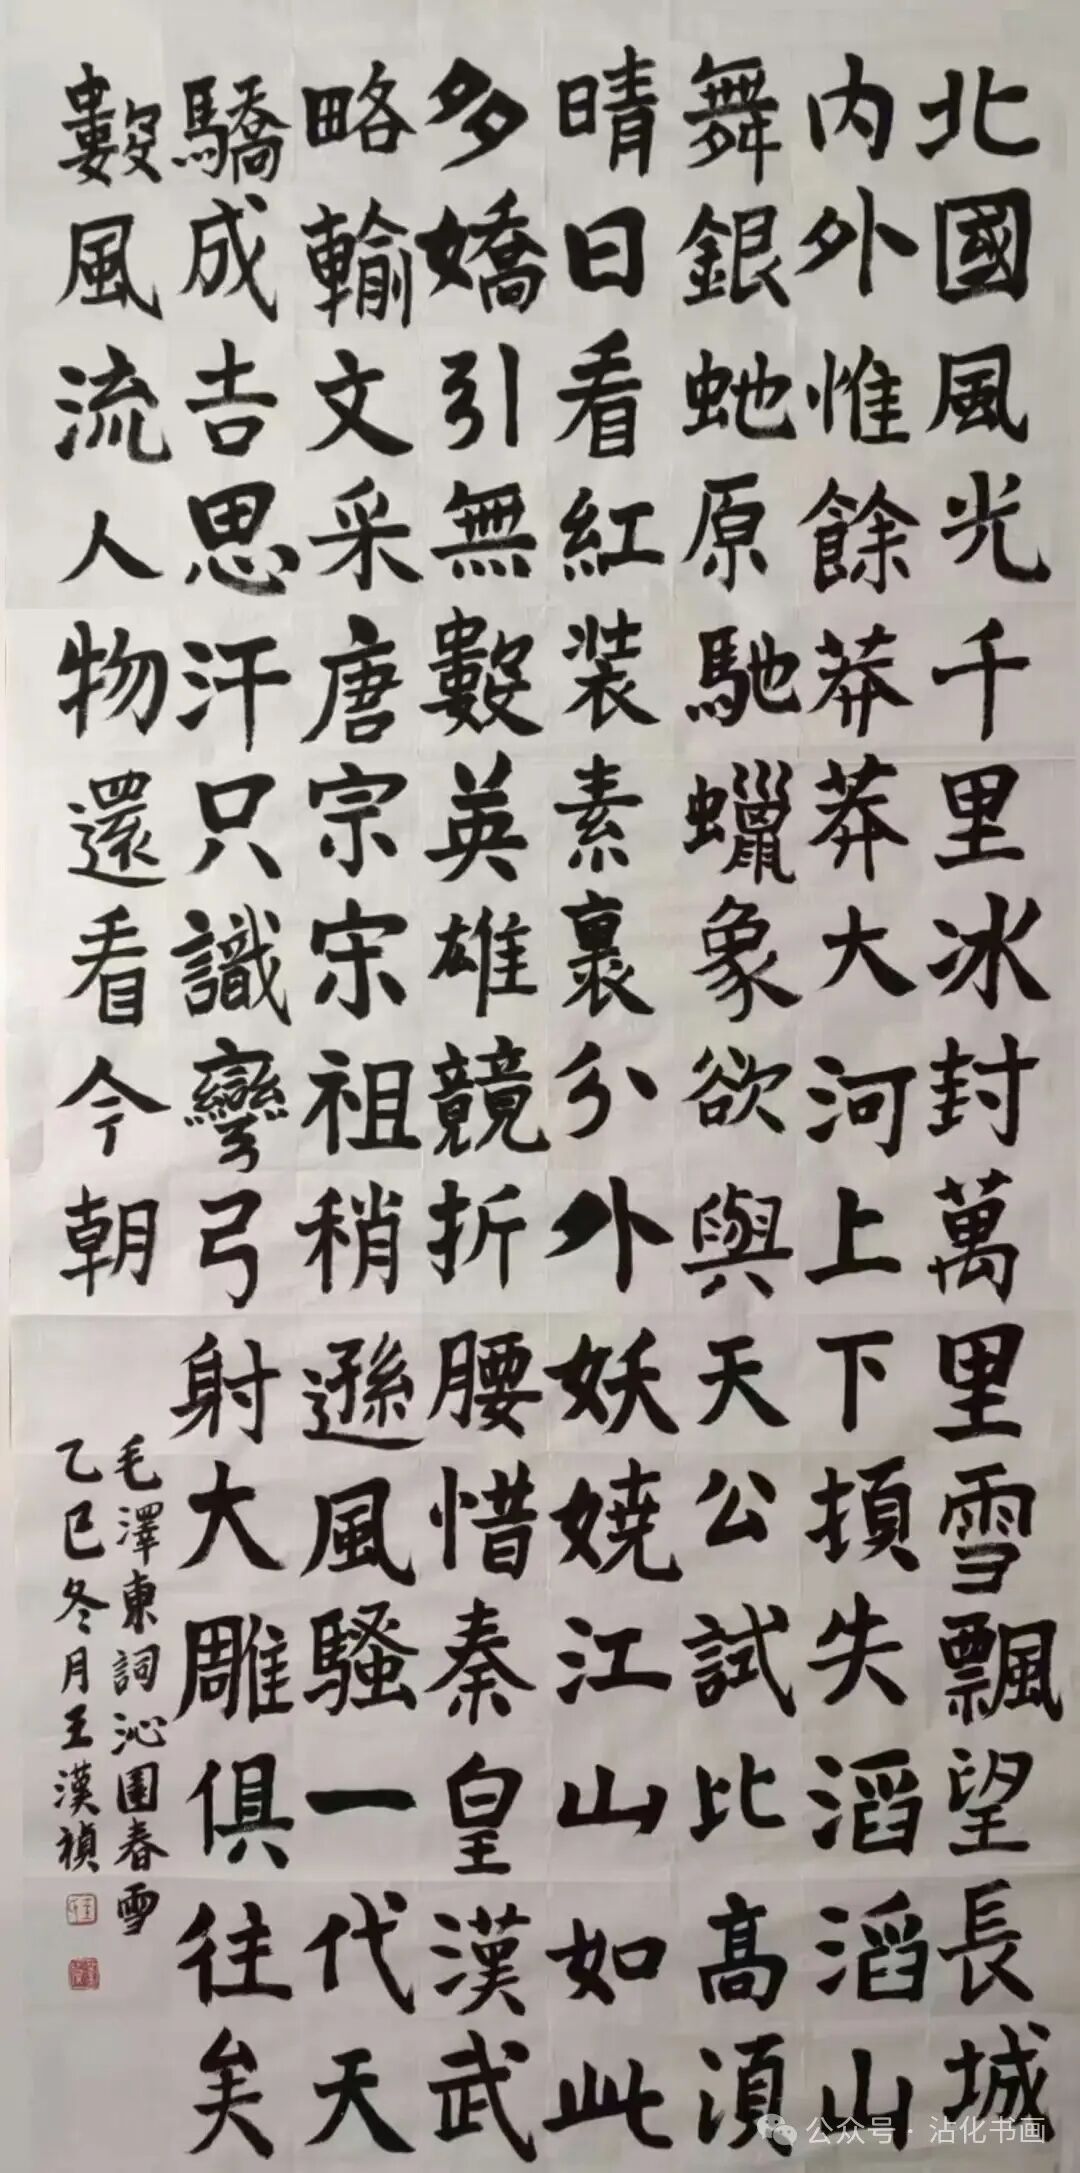 北國風光千里冰封萬里雪飄望長城
内外惟餘莽莽大河上下頓失滔滔山
舞銀虵原馳蠟象欲與天公試比高須
晴日看紅装素裹分外妖嬈江山如此
多嬌引無數英雄競折腰惜秦皇漢武
略輸文采唐宗宋祖稍遜風騷一代天
驕成吉思汗只識彎弓射大雕俱往矣
數風流人物還看今朝
毛澤東詞沁園春雪
乙巳冬月王漢禎
公众号 · 沾化书画